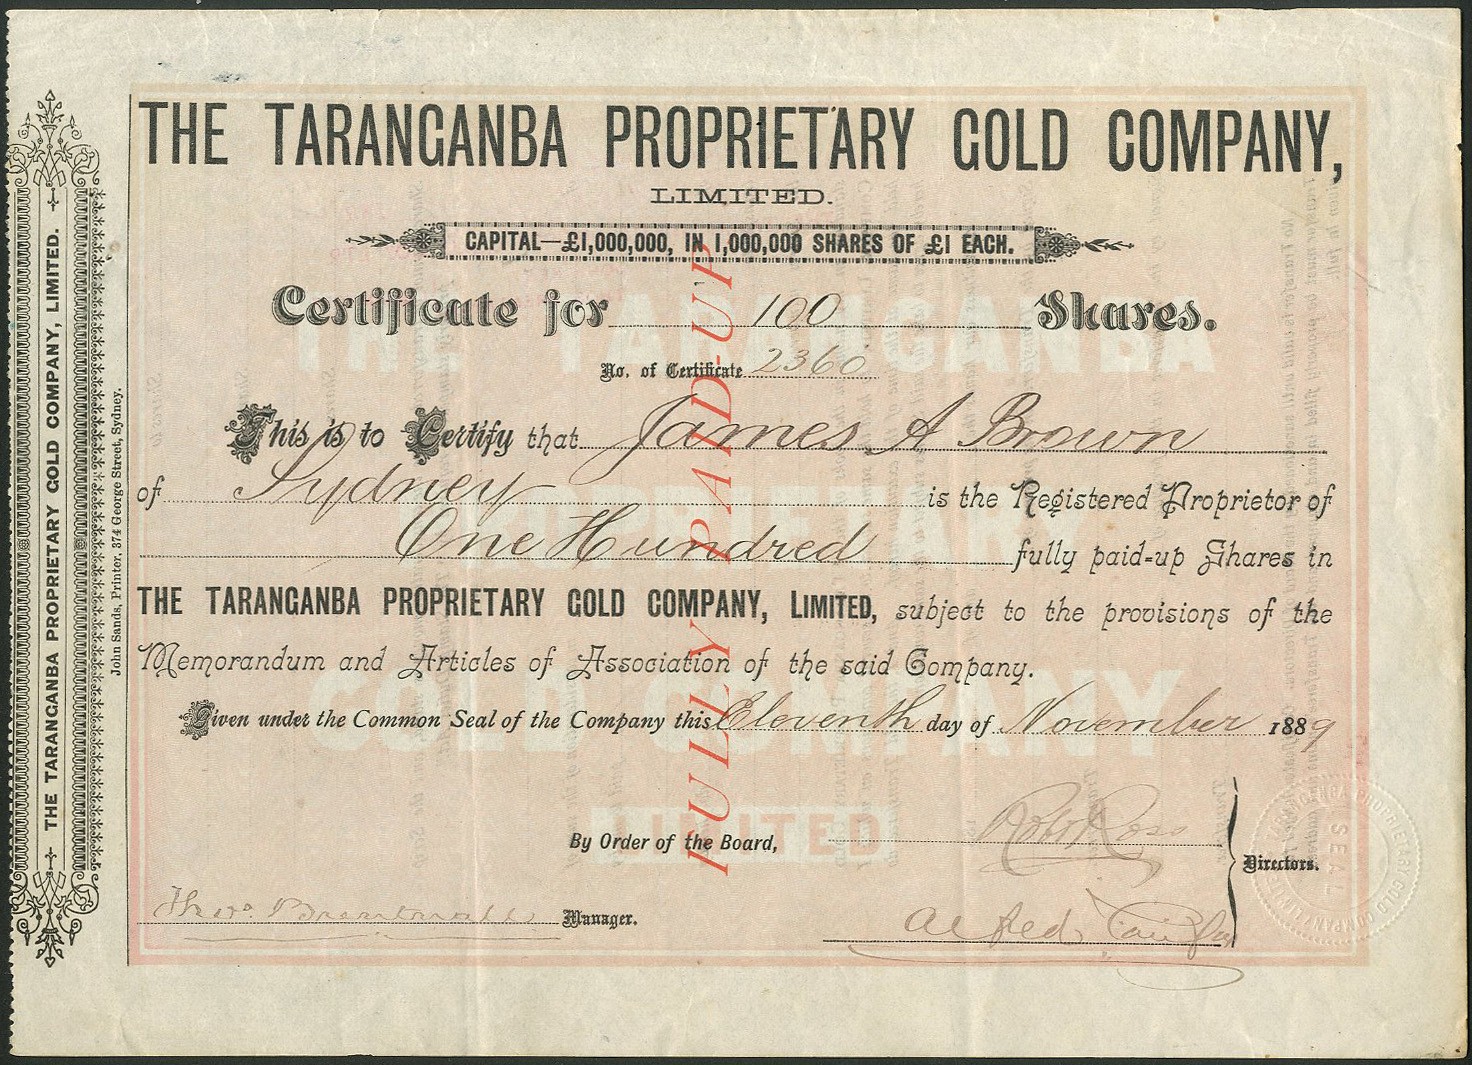 THE TARANGANBA PROPRIETARY GOLD COMPANY,
LIMITED.
CAPITAL—£1,000,000, IN 1,000,000 SHARES OF £1 EACH.
Certificate for 100 Shares.
No. of Certificate 2360
This is to Certify that James A Brown
of Sydney is the Registered Proprietor of
One Hundred fully paid-up Shares in
THE TARANGANBA PROPRIETARY GOLD COMPANY, LIMITED, subject to the provisions of the
Memorandum and Articles of Association of the said Company.
Given under the Common Seal of the Company this Eleventh day of November 1889
By Order of the Board,
Robt Ross
Directors.
Manager.
Alfred
FULLY PAID-UP
THE TARANGANBA PROPRIETARY GOLD COMPANY, LIMITED.
John Sands, Printer, 374 George Street, Sydney.
THE TARANGANBA
PROPRIETARY
GOLD COMPANY
LIMITED
TARANGANBA PROPRIETARY GOLD COMPANY LIMITED
SEAL